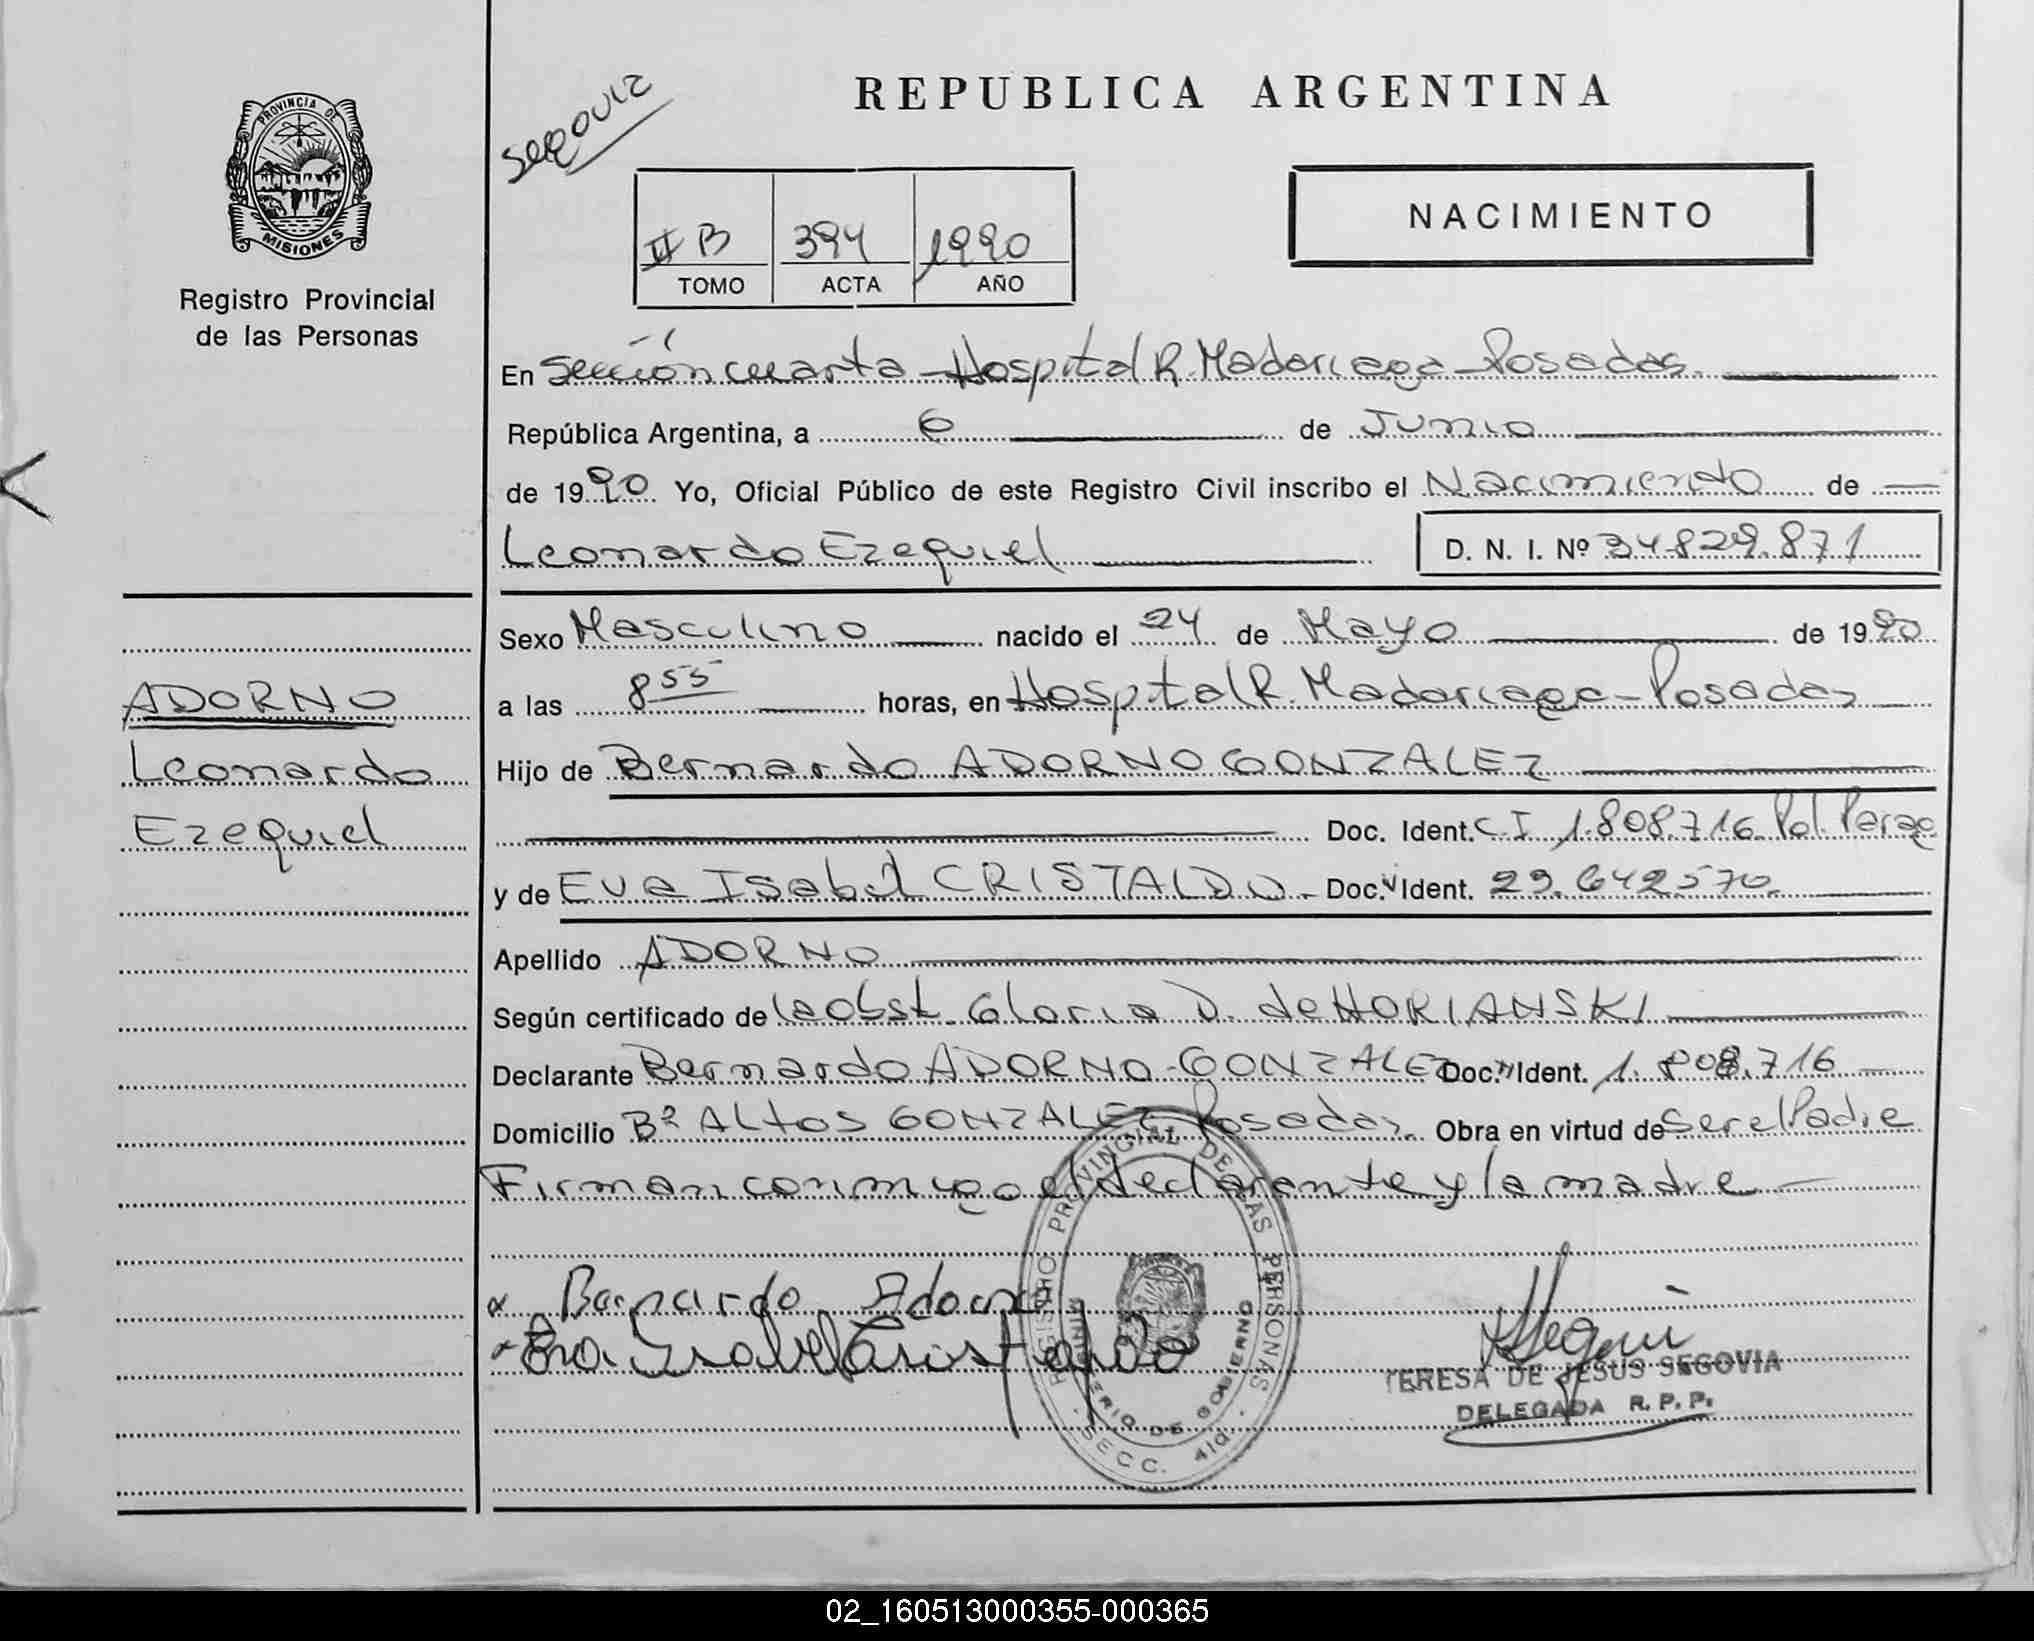 REPUBLICA ARGENTINA
PROVINCIA DE
MISIONES
Registro Provincial
de las Personas
NACIMIENTO
II B 394 1990
TOMO ACTA AÑO
En Sección cuarta - Hospital R. Madariaga - Posadas
República Argentina, a 6 de Junio
de 1990 Yo, Oficial Público de este Registro Civil inscribo el Nacimiento de
Leonardo Ezequiel D. N. I. Nº 34.829.871
Sexo Masculino nacido el 24 de Mayo de 1990
a las 8 55 horas, en Hospital R. Madariaga - Posadas
ADORNO
Leonardo
Ezequiel
Hijo de Bernardo ADORNO GONZALEZ
Doc. Ident. C I 1.808.716 Pol. Parag
y de Eva Isabel CRISTALDO - Doc. Ident. 29.642570
Apellido ADORNO
Según certificado de la Obst. Gloria D. de HORIANSKI
Declarante Bernardo ADORNO - GONZALEZ Doc. Ident. 1.808.716
Domicilio Bº ALtos GONZALEZ Posadas Obra en virtud de ser el Padre
Firman conmigo el declarante y la madre
Bernardo Adorno
Eva Isabel Cristaldo
REGISTRO PROVINCIAL DE LAS PERSONAS
MINISTERIO DE GOBIERNO
SECC. 4ta.
TERESA DE JESUS SEGOVIA
DELEGADA R. P. P.
02_160513000355-000365